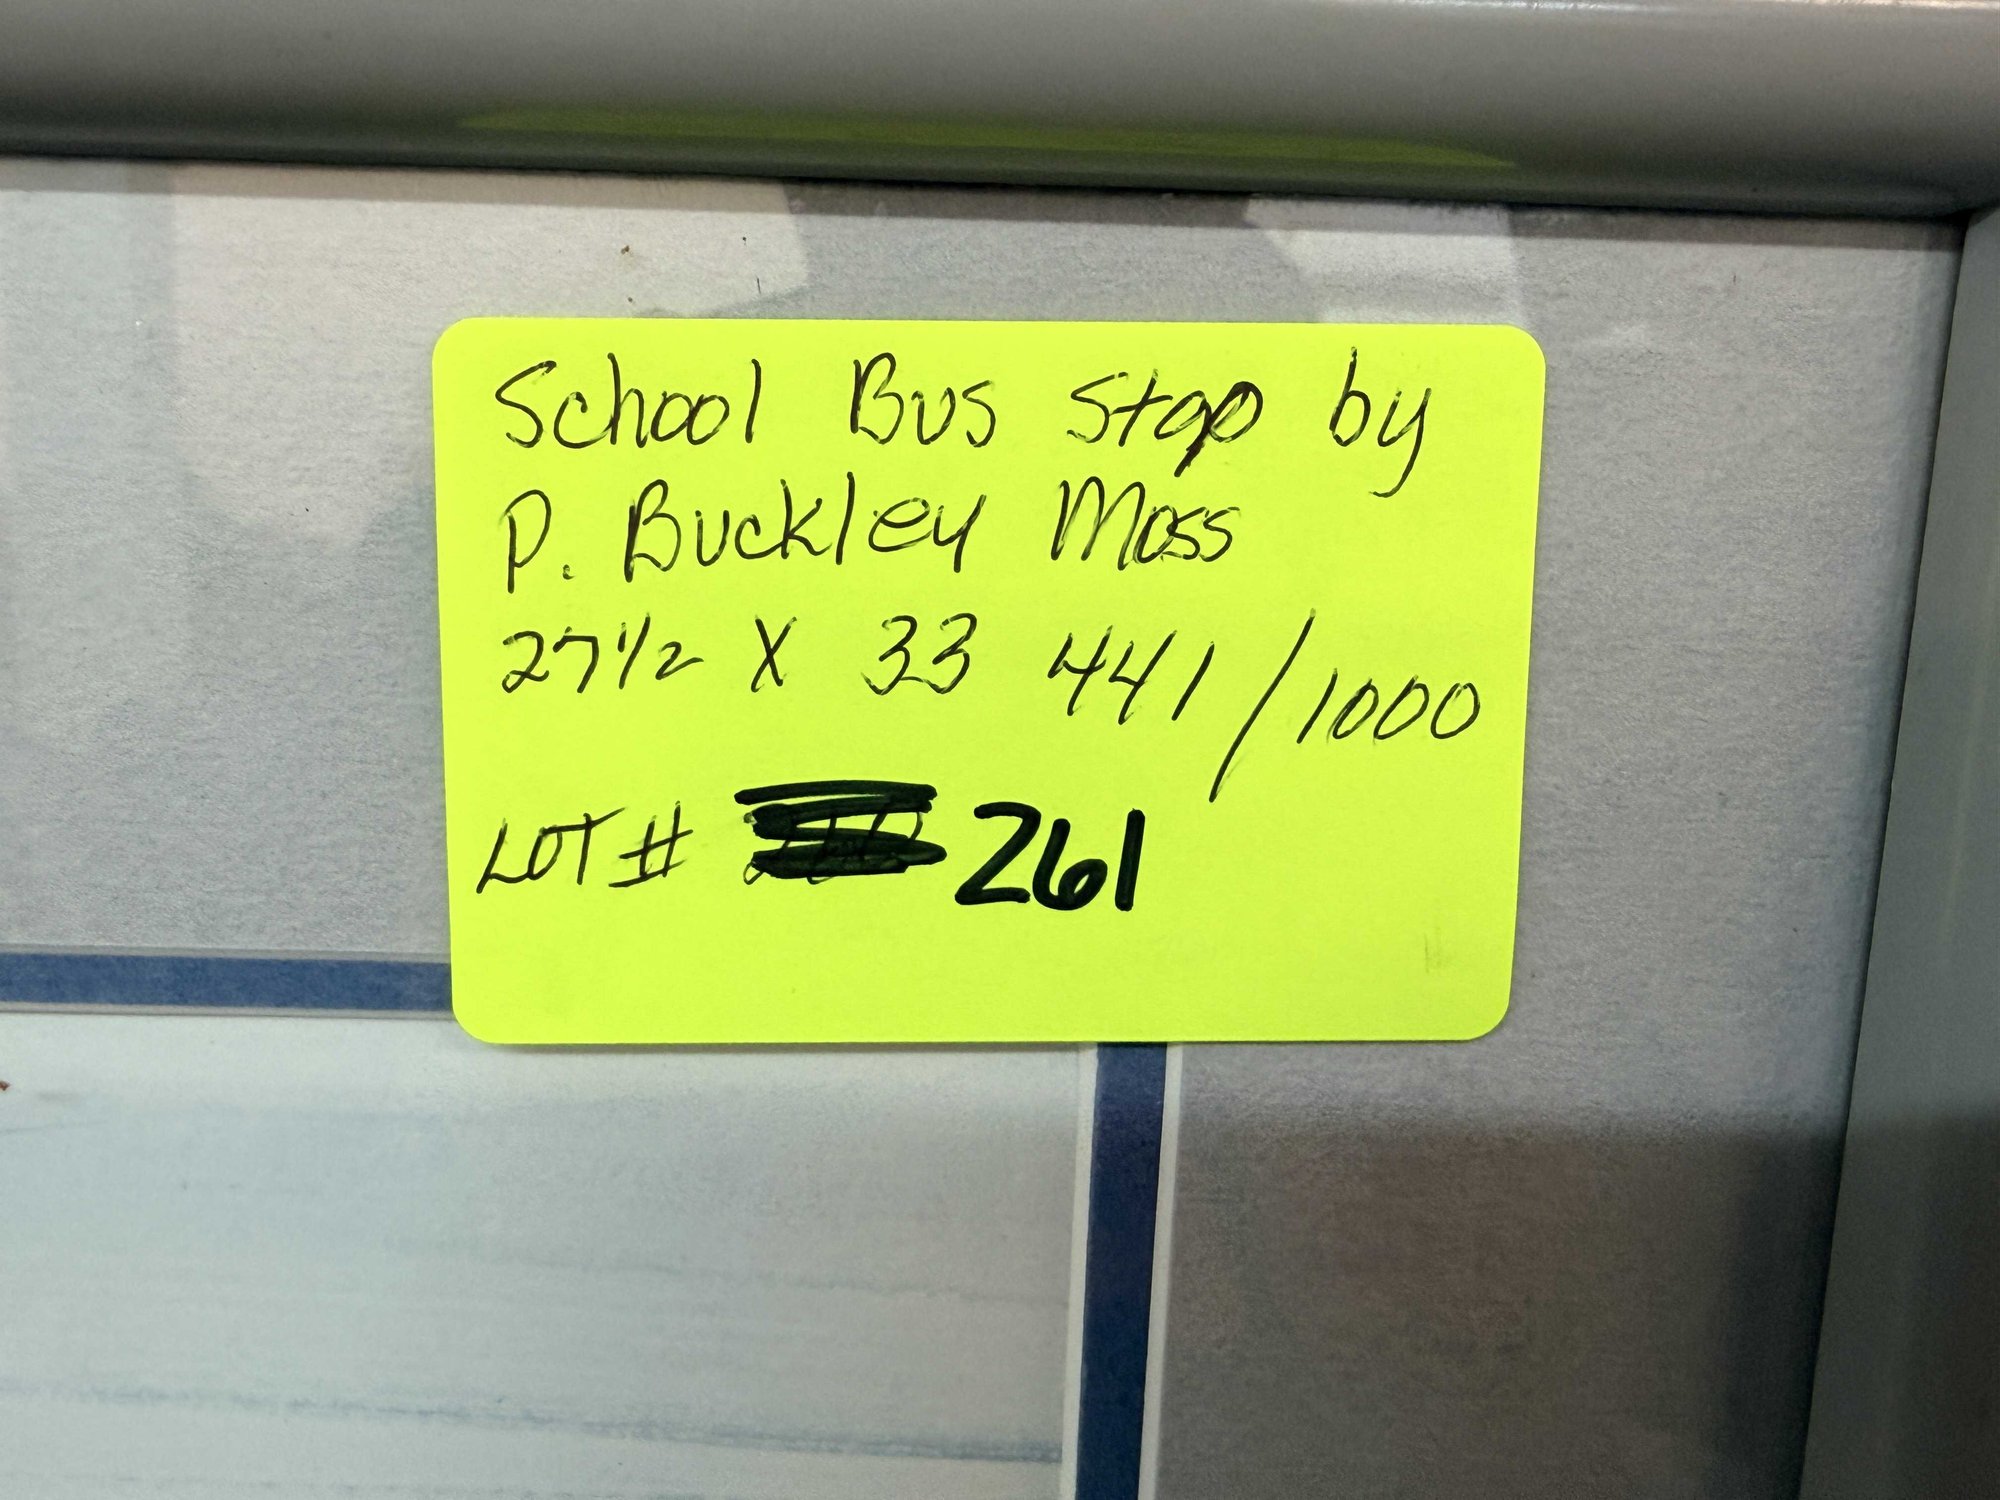 School Bus Stop by
P. Buckley Moss
27 1/2 X 33 441/1000
LOT # 261